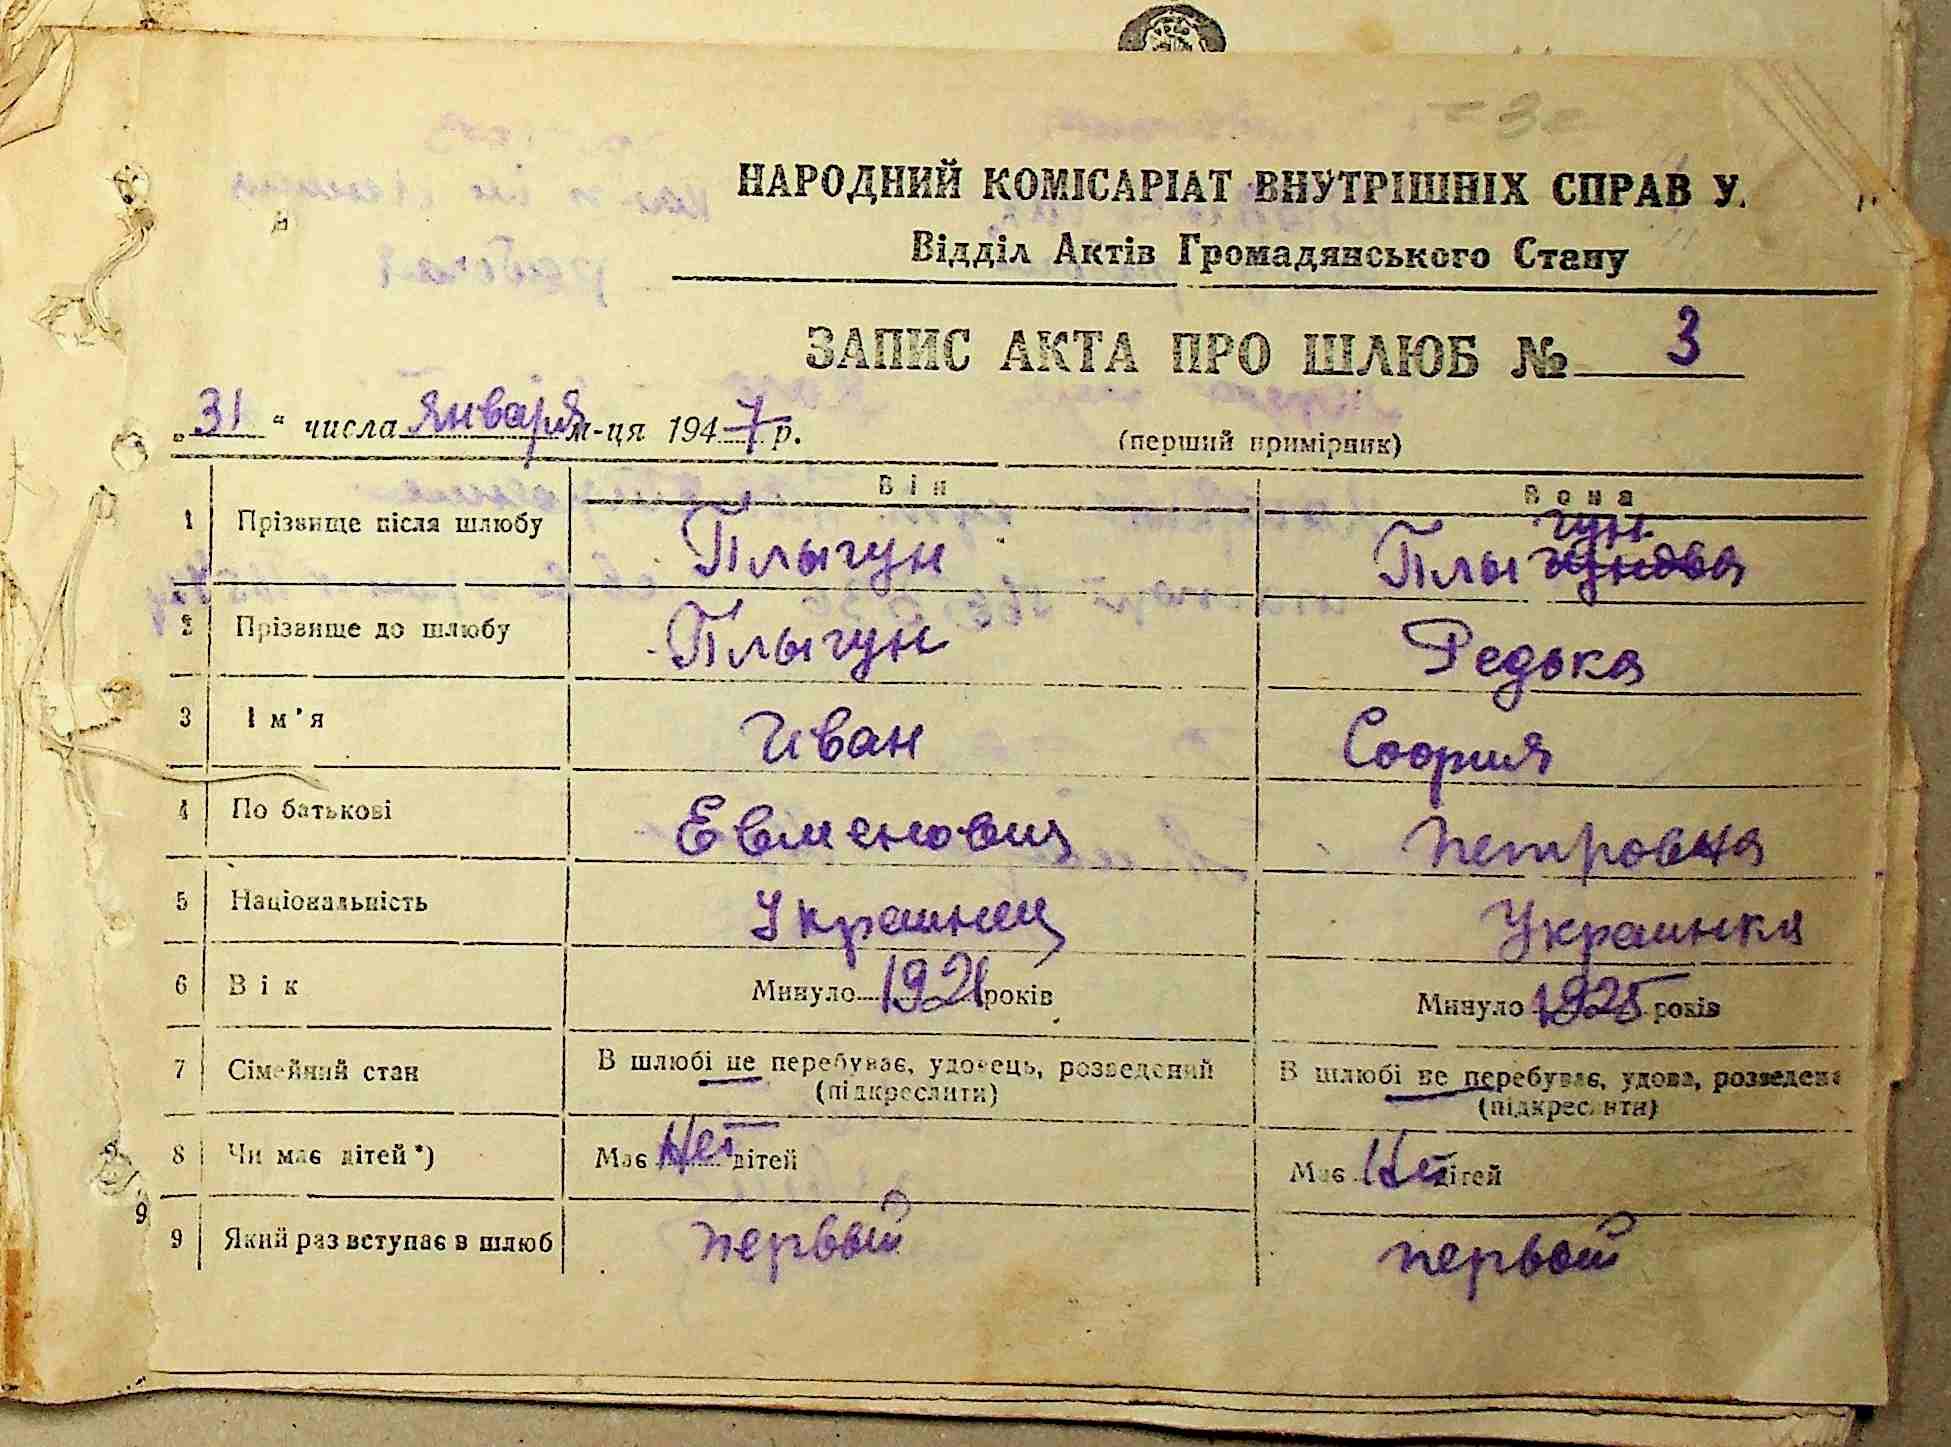 - 3 -
НАРОДНИЙ КОМІСАРІАТ ВНУТРІШНІХ СПРАВ У.
Відділ Актів Громадянського Стану
ЗАПИС АКТА ПРО ШЛЮБ № 3
„31“ числа января м-ця 1947 р.
(перший примірник)
Він Вона
1 Прізвище після шлюбу Плыгун Плыгун
2 Прізвище до шлюбу Плыгун Редька
3 Ім'я Иван София
4 По батькові Евменович Петровна
5 Національність Украинец Украинка
6 Вік Минуло 1921 років Минуло 1925 років
7 Сімейний стан В шлюбі не перебуває, удовець, розведений В шлюбі не перебуває, удова, розведена
(підкреслити) (підкреслити)
8 Чи має дітей*) Має Нет дітей Має Нет дітей
9 9 Який раз вступає в шлюб первый первый